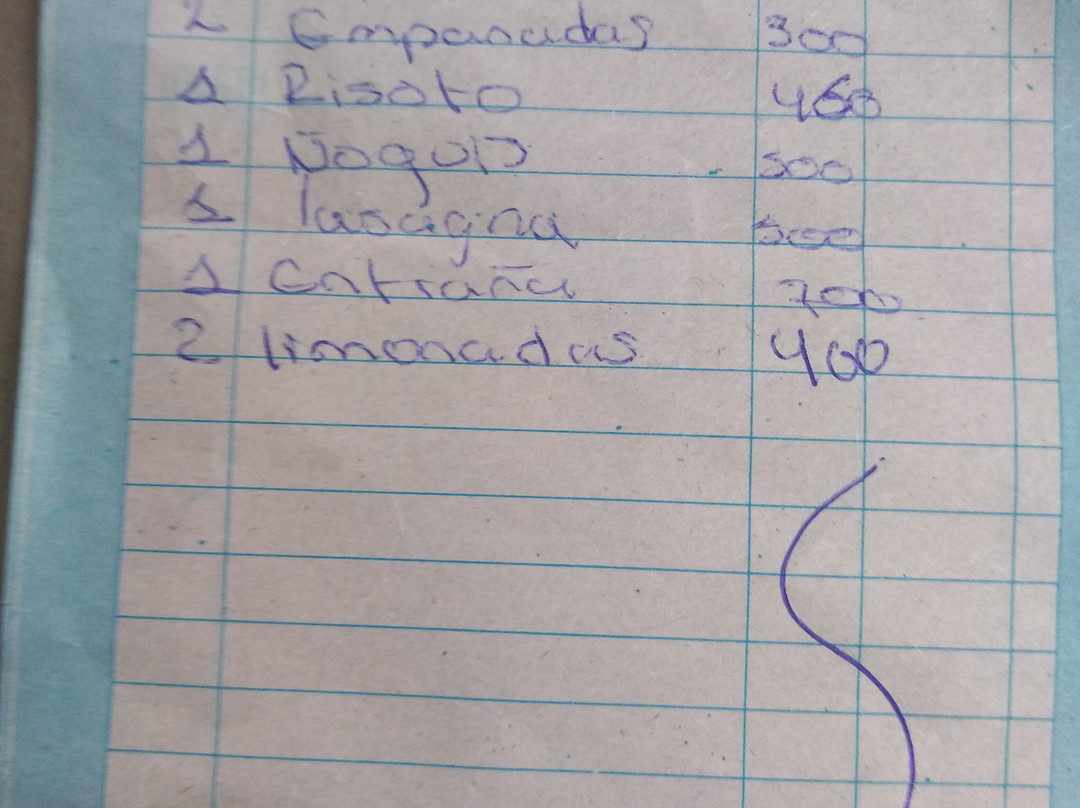 2 Empanadas 300
1 Risoto 460
1 Ñoquis 500
1 lasagna 500
1 Entraña 700
2 limonadas 400